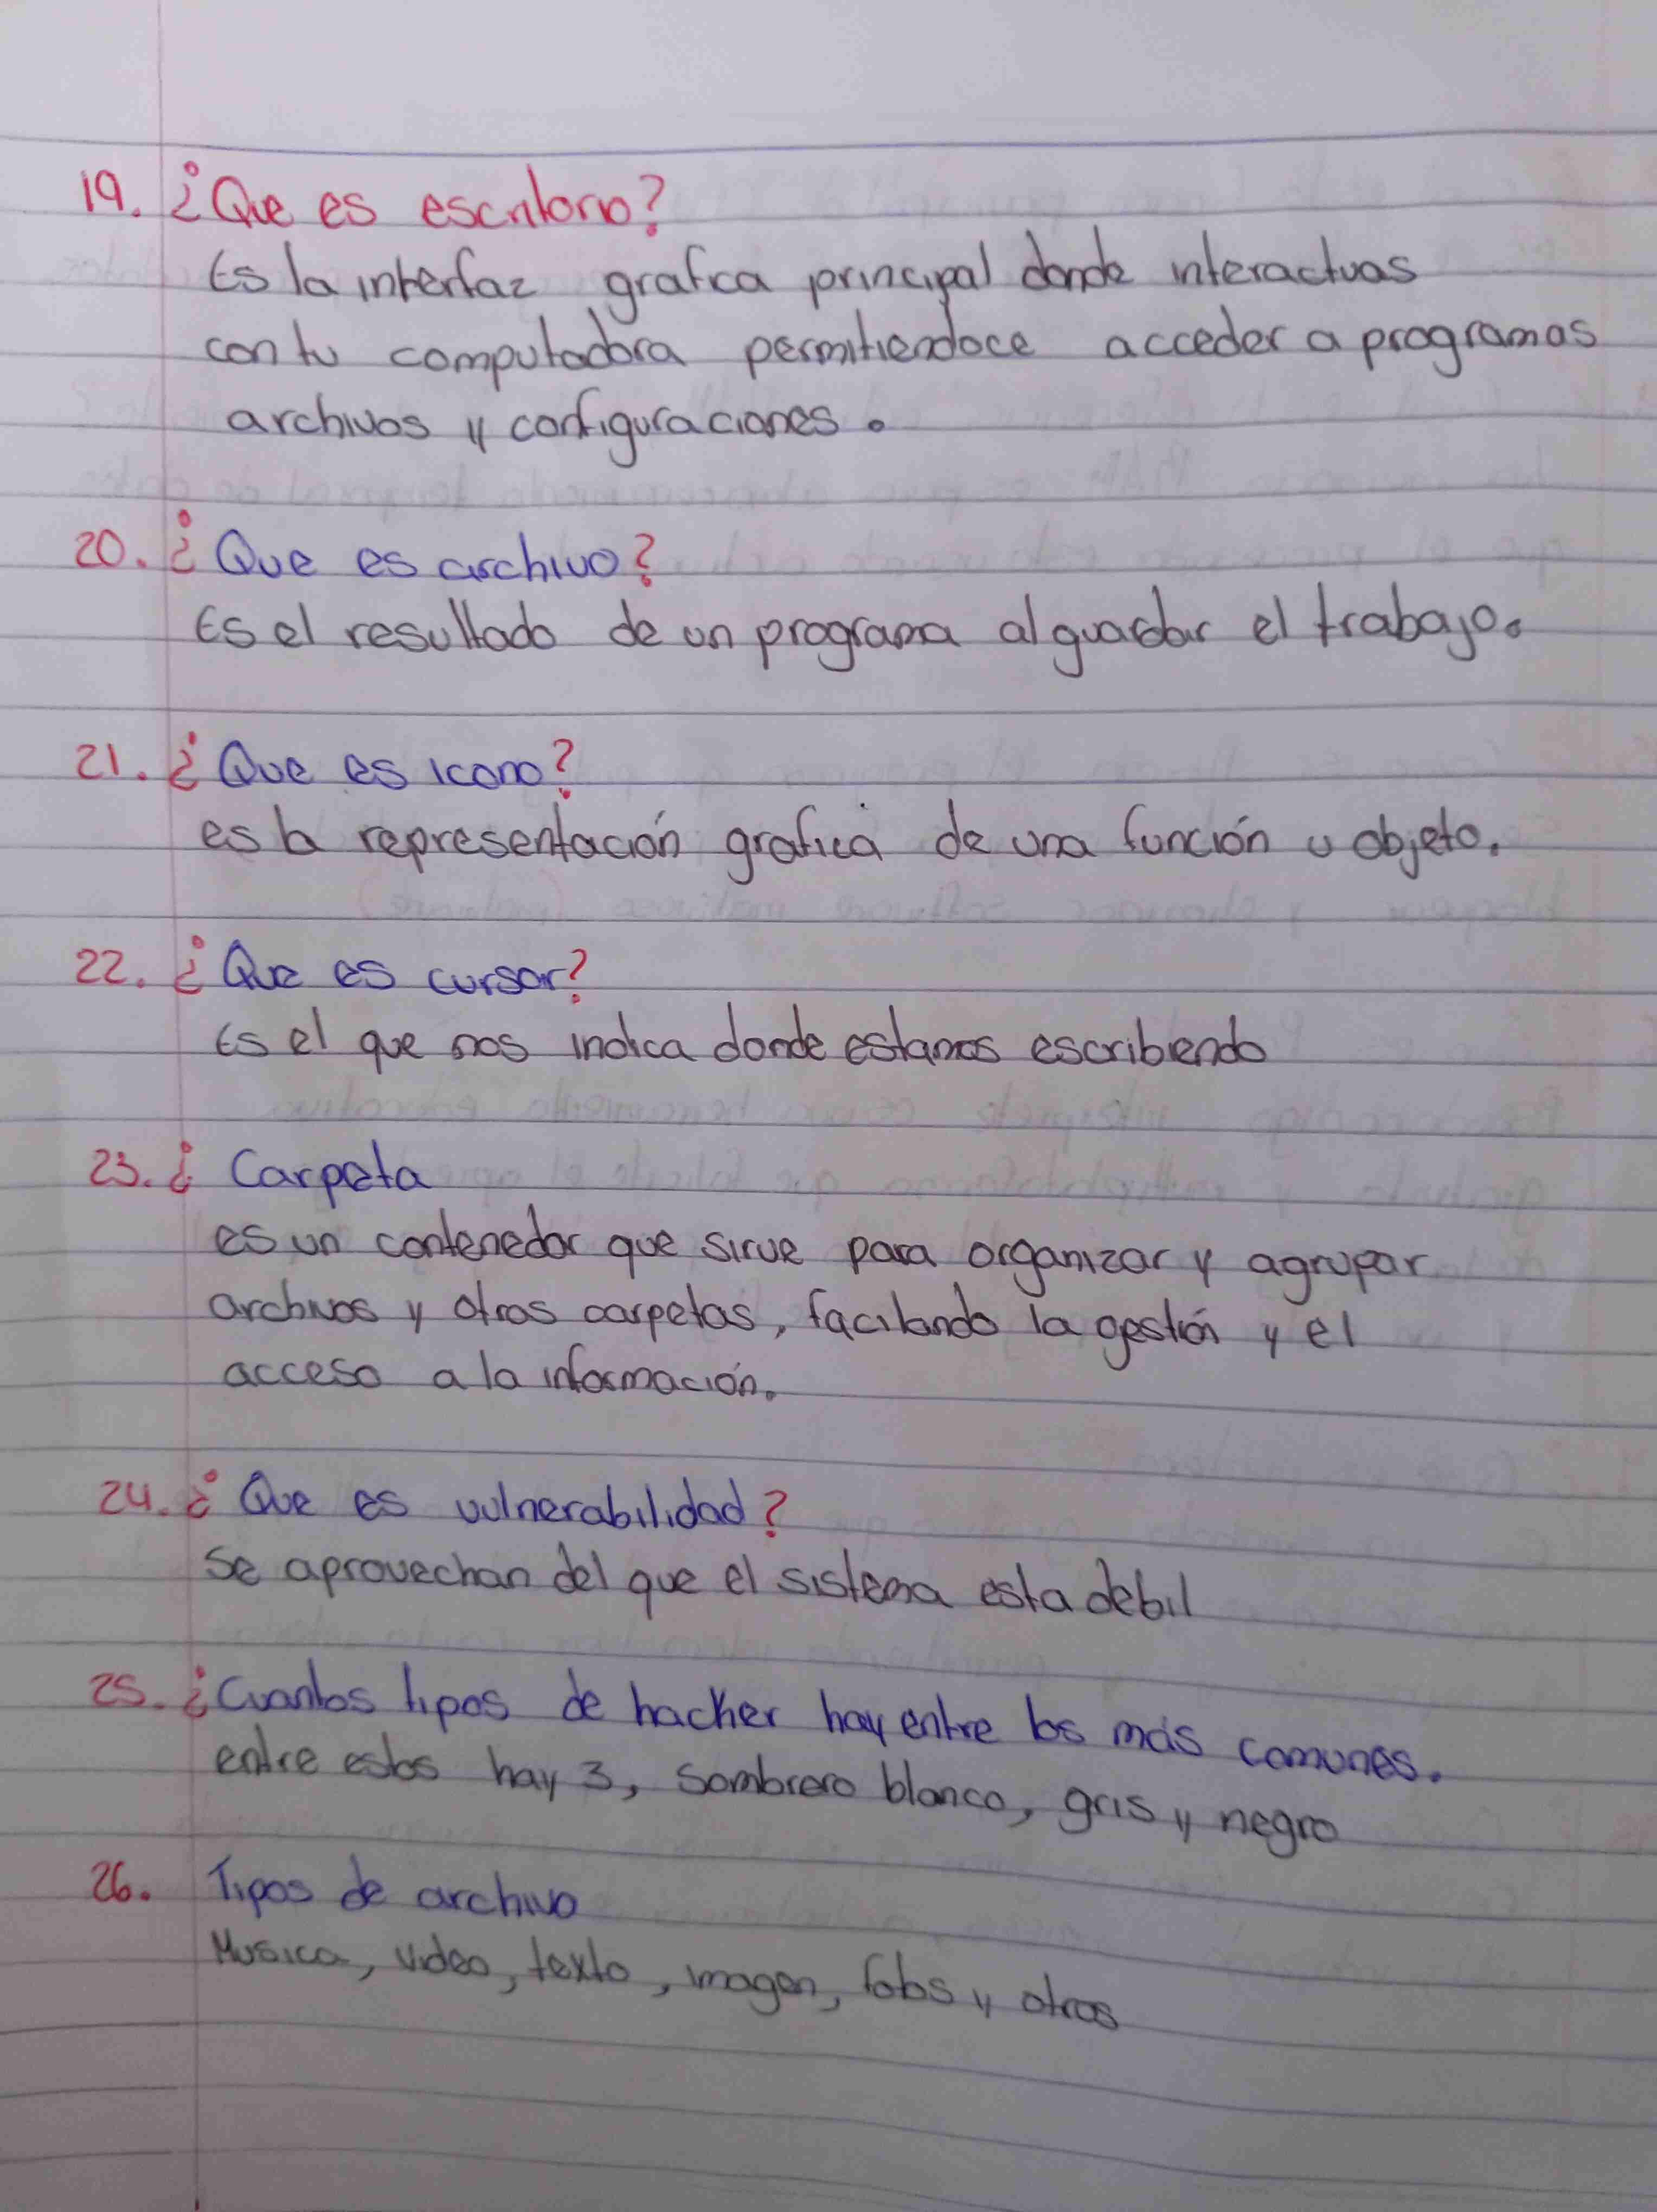 19. ¿Que es escritorio?
Es la interfaz grafica principal donde interactuas
con tu computadora permitiendoce acceder a programas
archivos y configuraciones.
20. ¿Que es archivo?
Es el resultado de un programa al guardar el trabajo.
21. ¿Que es icono?
es la representación grafica de una función u objeto.
22. ¿Que es cursor?
Es el que nos indica donde estamos escribiendo
23. ¿ Carpeta
es un contenedor que sirve para organizar y agrupar
archivos y otras carpetas, facilando la gestión y el
acceso a la información.
24. ¿Que es vulnerabilidad?
Se aprovechan del que el sistema esta debil
25. ¿Cuantos tipos de hacker hay entre los más comunes.
entre estos hay 3, Sombrero blanco, gris y negro
26. Tipos de archivo
Musica, video, texto, imagen, fotos y otros